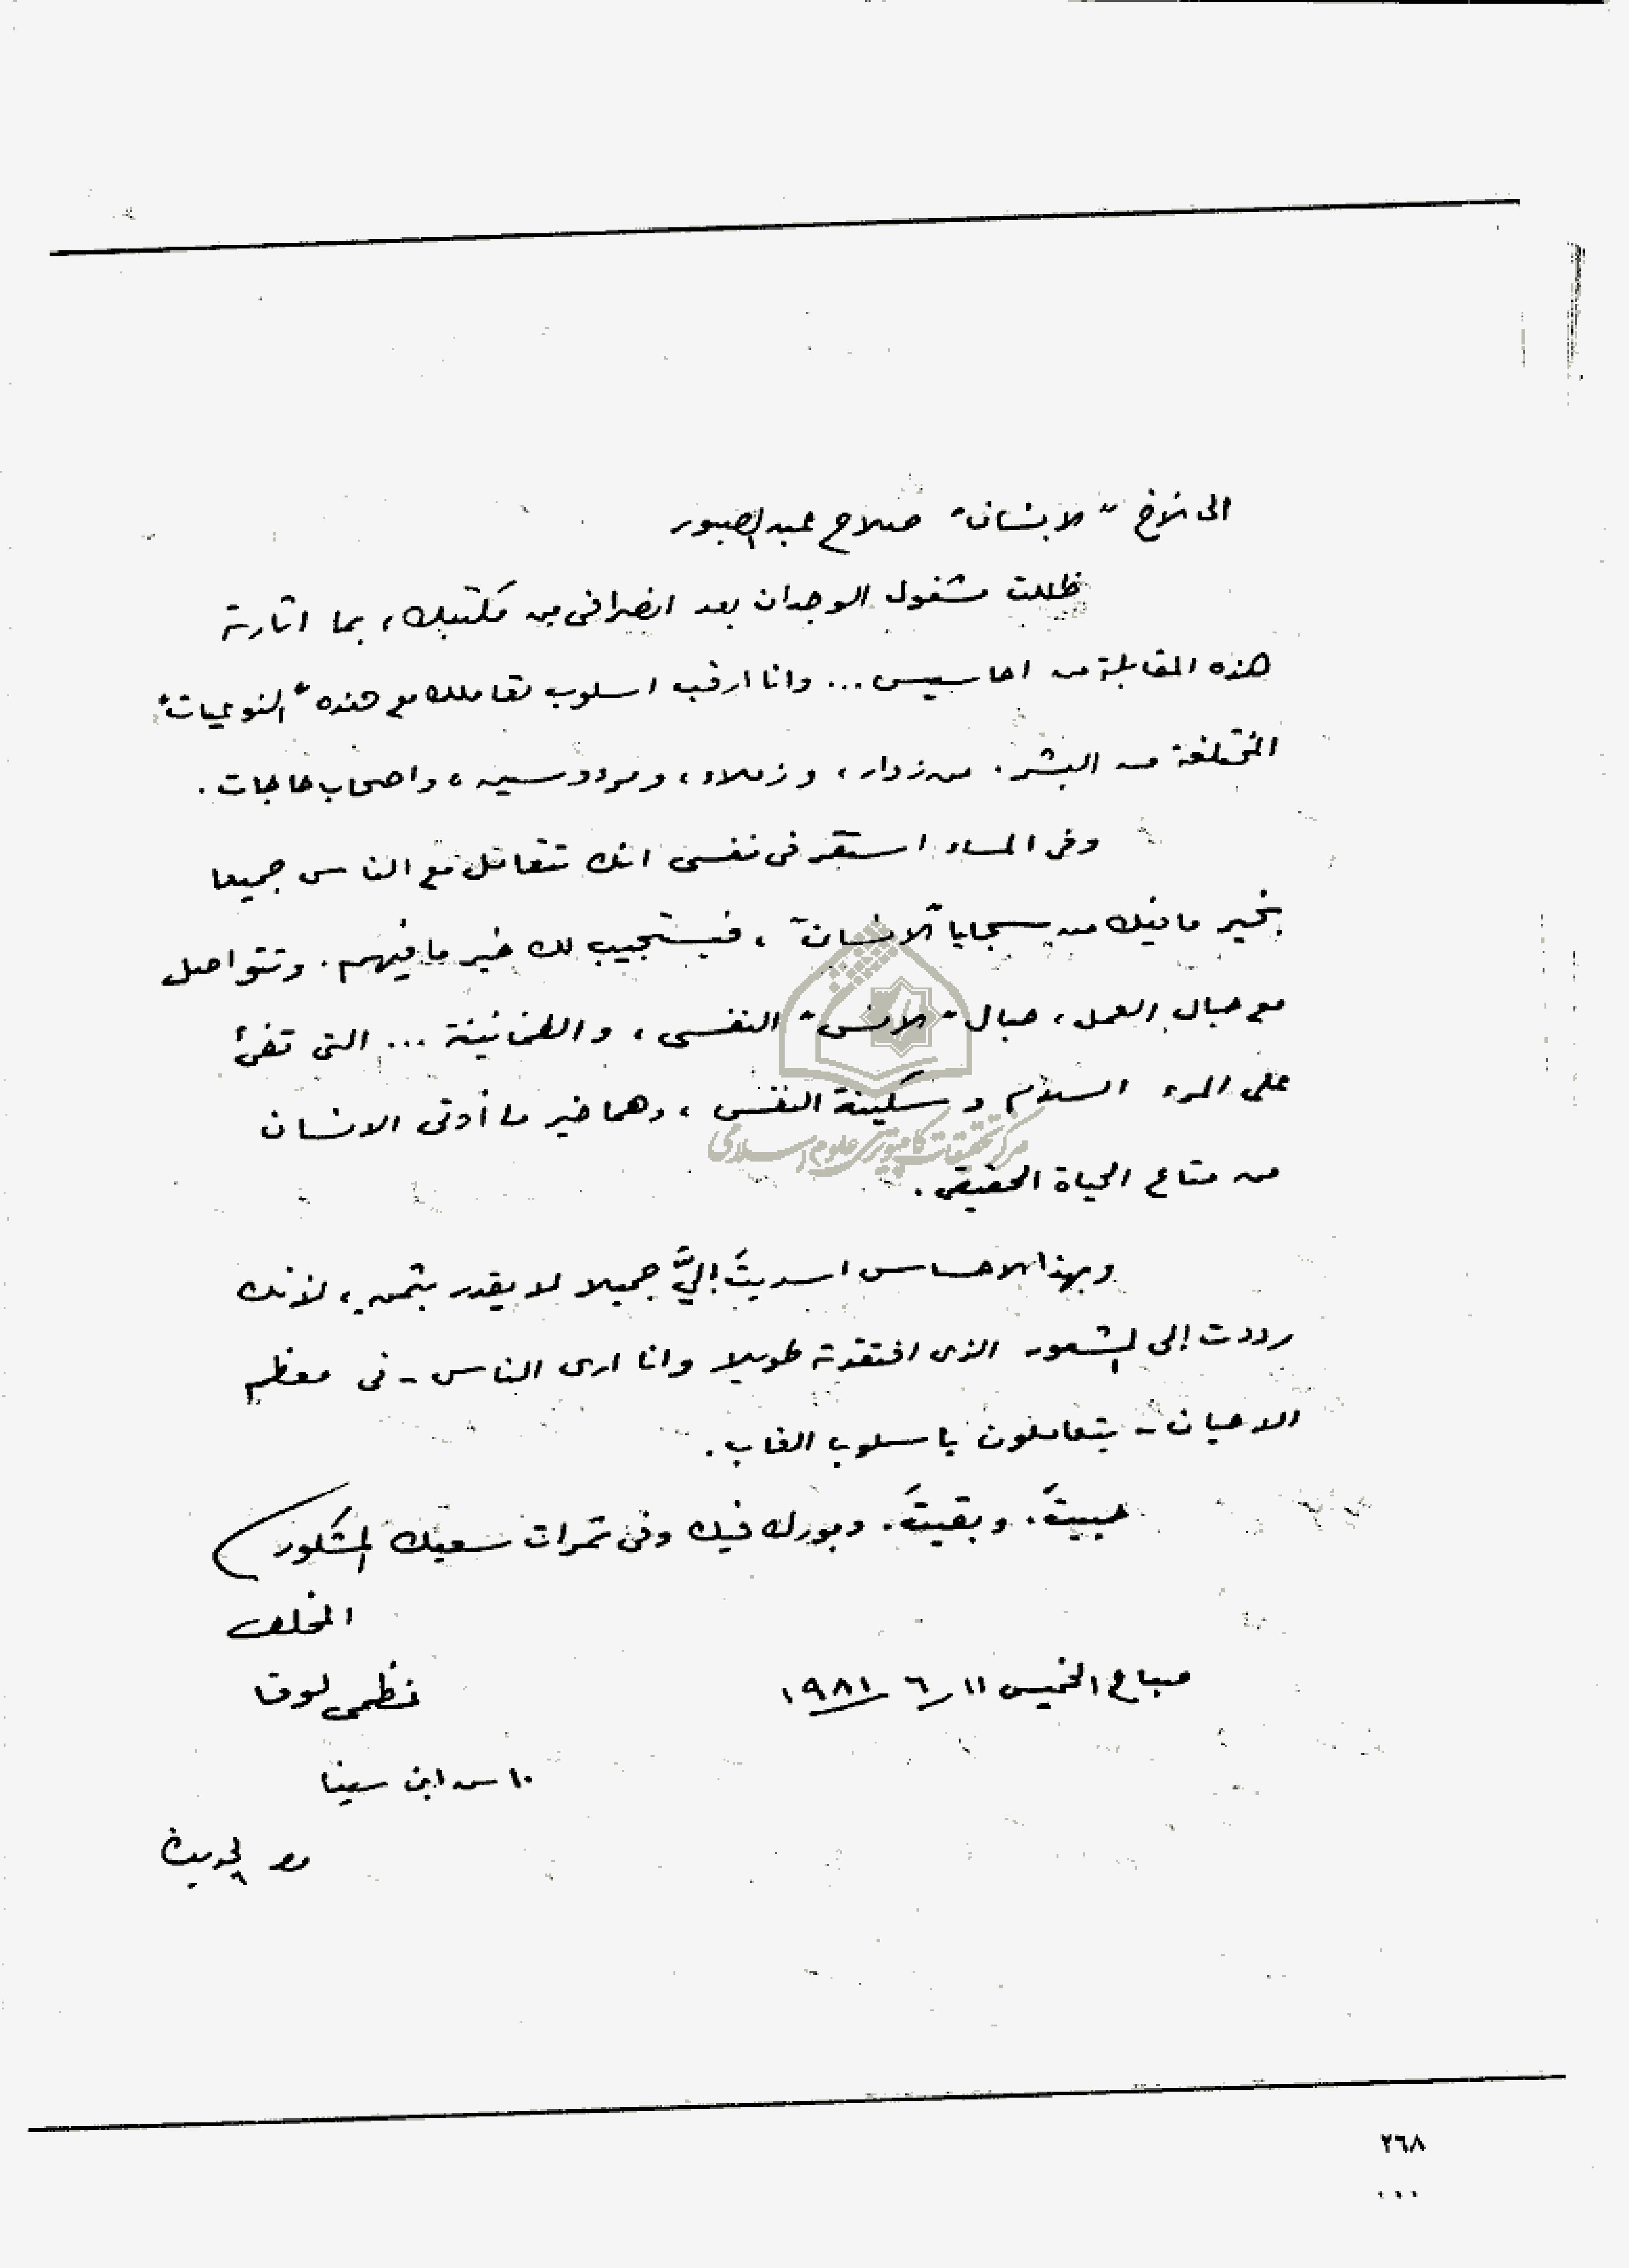 الى الأخ "الانسان" صلاح عبد الصبور
ظللت مشغول الوجدان بعد انصرافى من مكتبك، بما اثارته
هذه المقابلة من احاسيس... وانا ارقب اسلوب تعاملك مع هذه "النوعيات"
المختلفة من البشر. من زوار، وزملاء، ومرءوسين، واصحاب حاجات.
وفى المساء استقر فى نفسى انك تتعامل مع الناس جميعا
بخير ما فيك من سجايا "الانسان"، فيستجيب لك خير ما فيهم. وتتواصل
مع حبال العمل، حبال "الانس" النفسى، والطمأنينة... التى تفئ
على المرء السلام وسكينة النفس، وهما خير ما أوتى الانسان
من متاع الحياة الحقيقى.
وبهذا الاحساس اسديتَ إليَّ جميلا لا يقدر بثمن، لأنك
رددت إلى الشعور الذى افتقدته طويلا وانا ارى الناس - فى معظم
الاحيان - يتعاملون باسلوب الغاب.
حييتَ. وبقيتَ. وبورك فيك وفى ثمرات سعيك المشكور
المخلص
صباح الخميس ١١/٦/١٩٨١
نظمى لوقا
١٠ ش ابن سينا
مركز تحقيقات كامپيوترى علوم اسلامى
٢٦٨